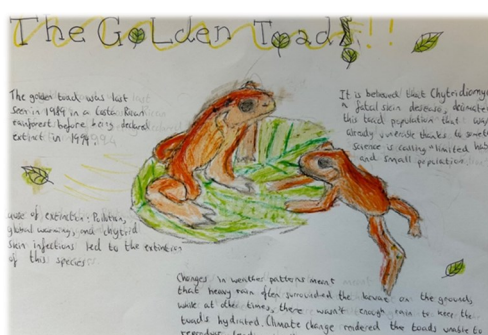 The Golden Toad!!!
The golden toad was last
seen in 1989 in a Costa Rican
rainforest before being declared
extinct in 1994.
It is believed that Chytridiomy
a fatal skin desease, decimate
this toad population that was
already vunerable thanks to
Science is calling "limited hab
and small population
use of extinction: Pollution,
global warming, and chytrid
skin infections led to the extinction
of this species
Changes in weather patterns meant
that heavy rain often the on the ground,
while at other times, there wasn't enough rain to keep the
toads hydrated. Climate change rendered the toads unable to